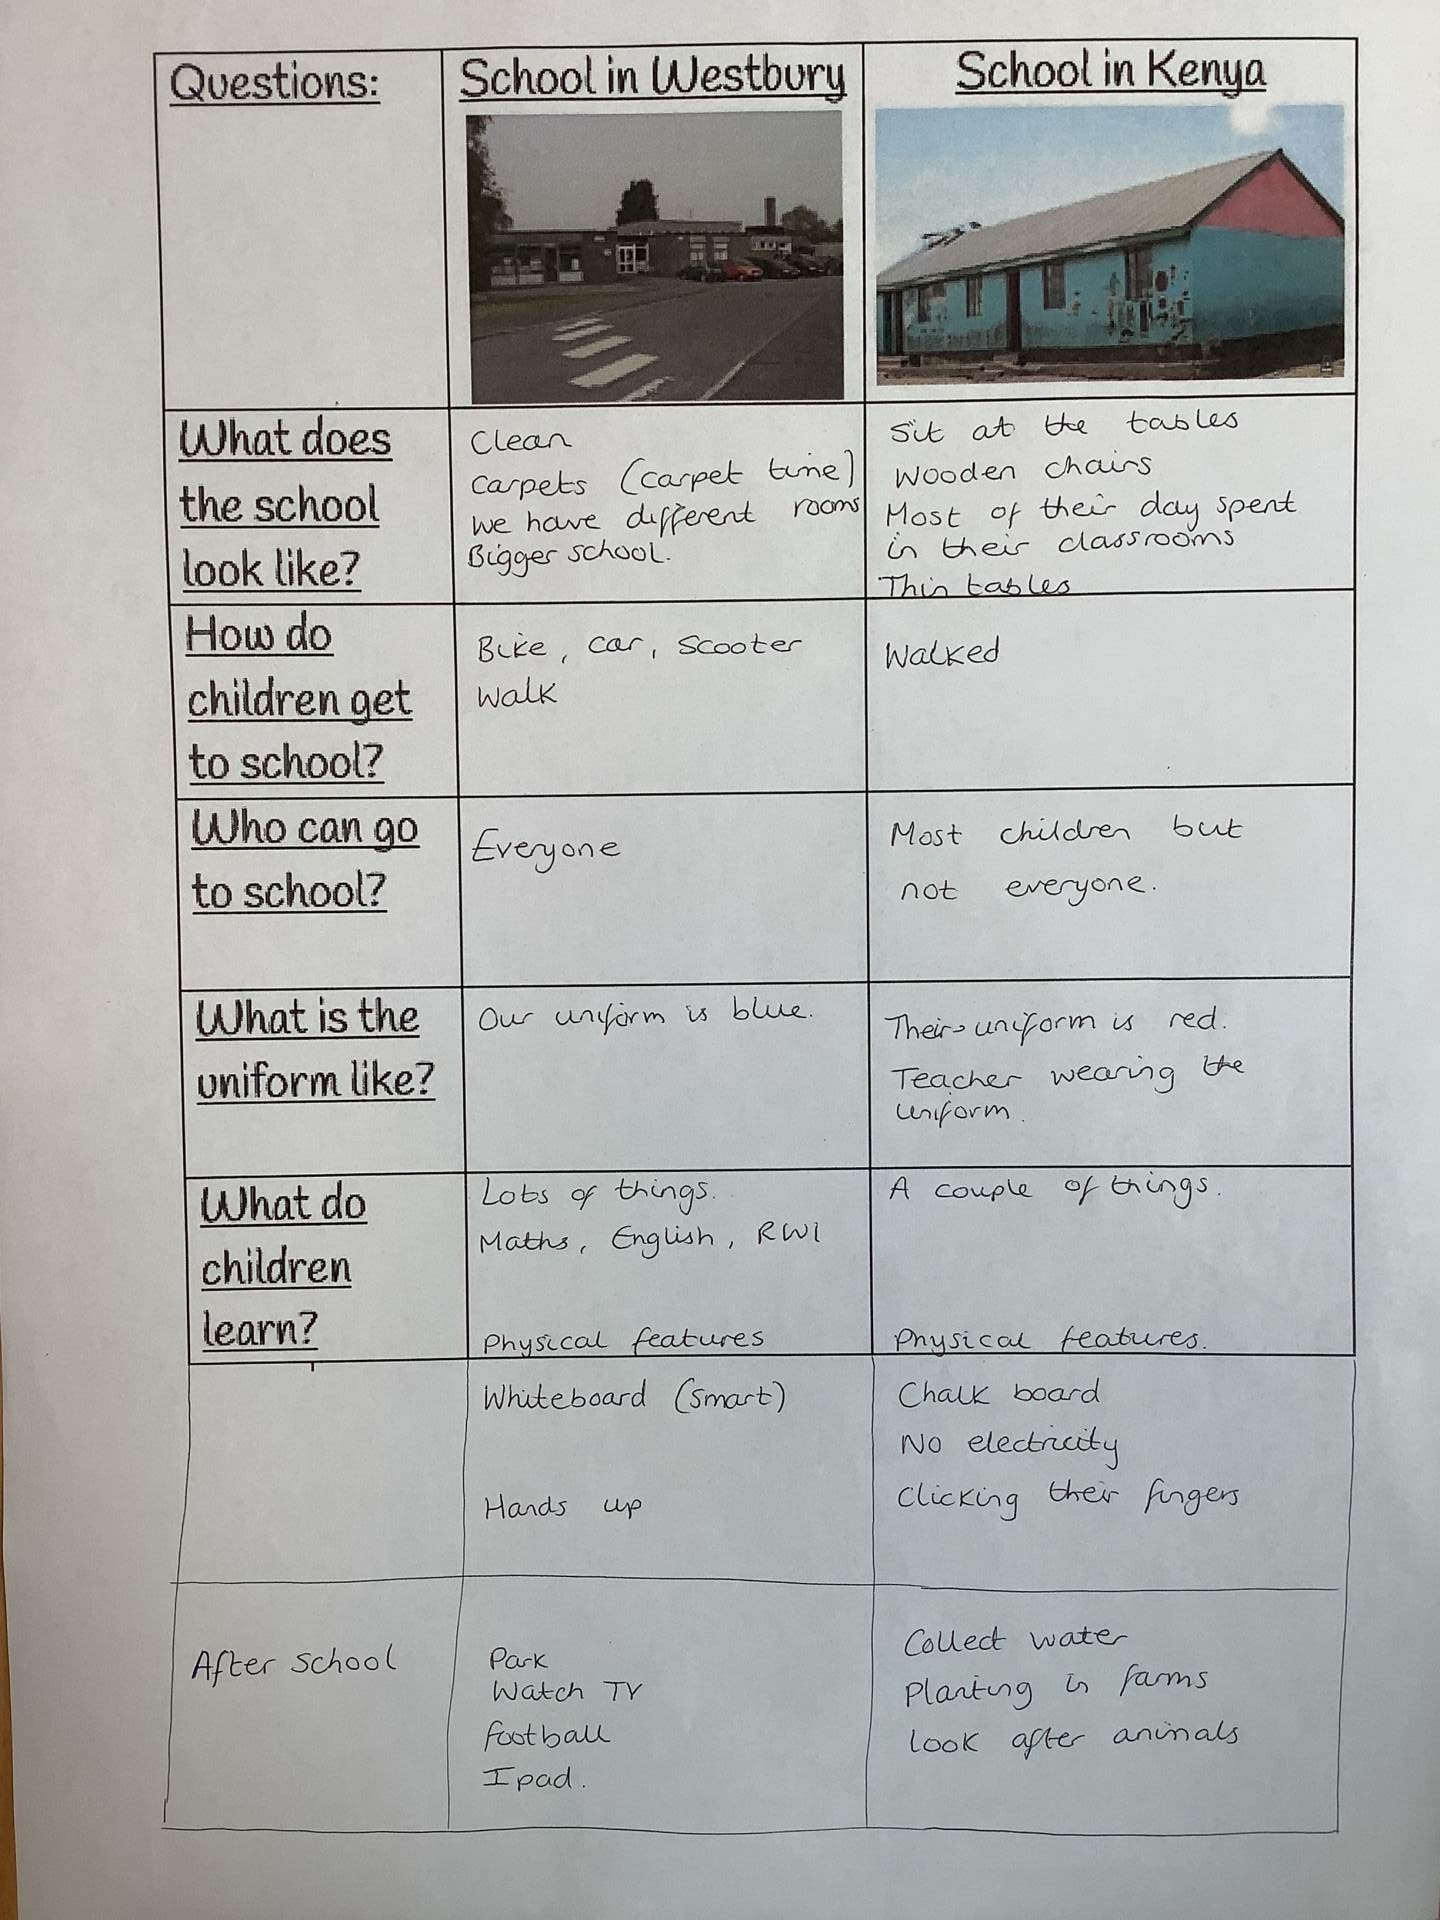 Questions:
School in Westbury
School in Kenya
What does
the school
look like?
Clean
Carpets (carpet time)
we have different rooms
Bigger school.
Sit at the tables
Wooden chairs
Most of their day spent
in their classrooms
Thin tables
How do
children get
to school?
Bike, car, scooter
walk
Walked
Who can go
to school?
Everyone
Most children but
not everyone.
What is the
uniform like?
Our uniform is blue.
Their uniform is red.
Teacher wearing the
uniform.
What do
children
learn?
Lots of things.
Maths, English, RWI
Physical features
A couple of things.
Physical features.
Whiteboard (smart)
Hands up
Chalk board
No electricity
Clicking their fingers
After school
Park
Watch TV
football
Ipad.
Collect water
Planting in farms
look after animals